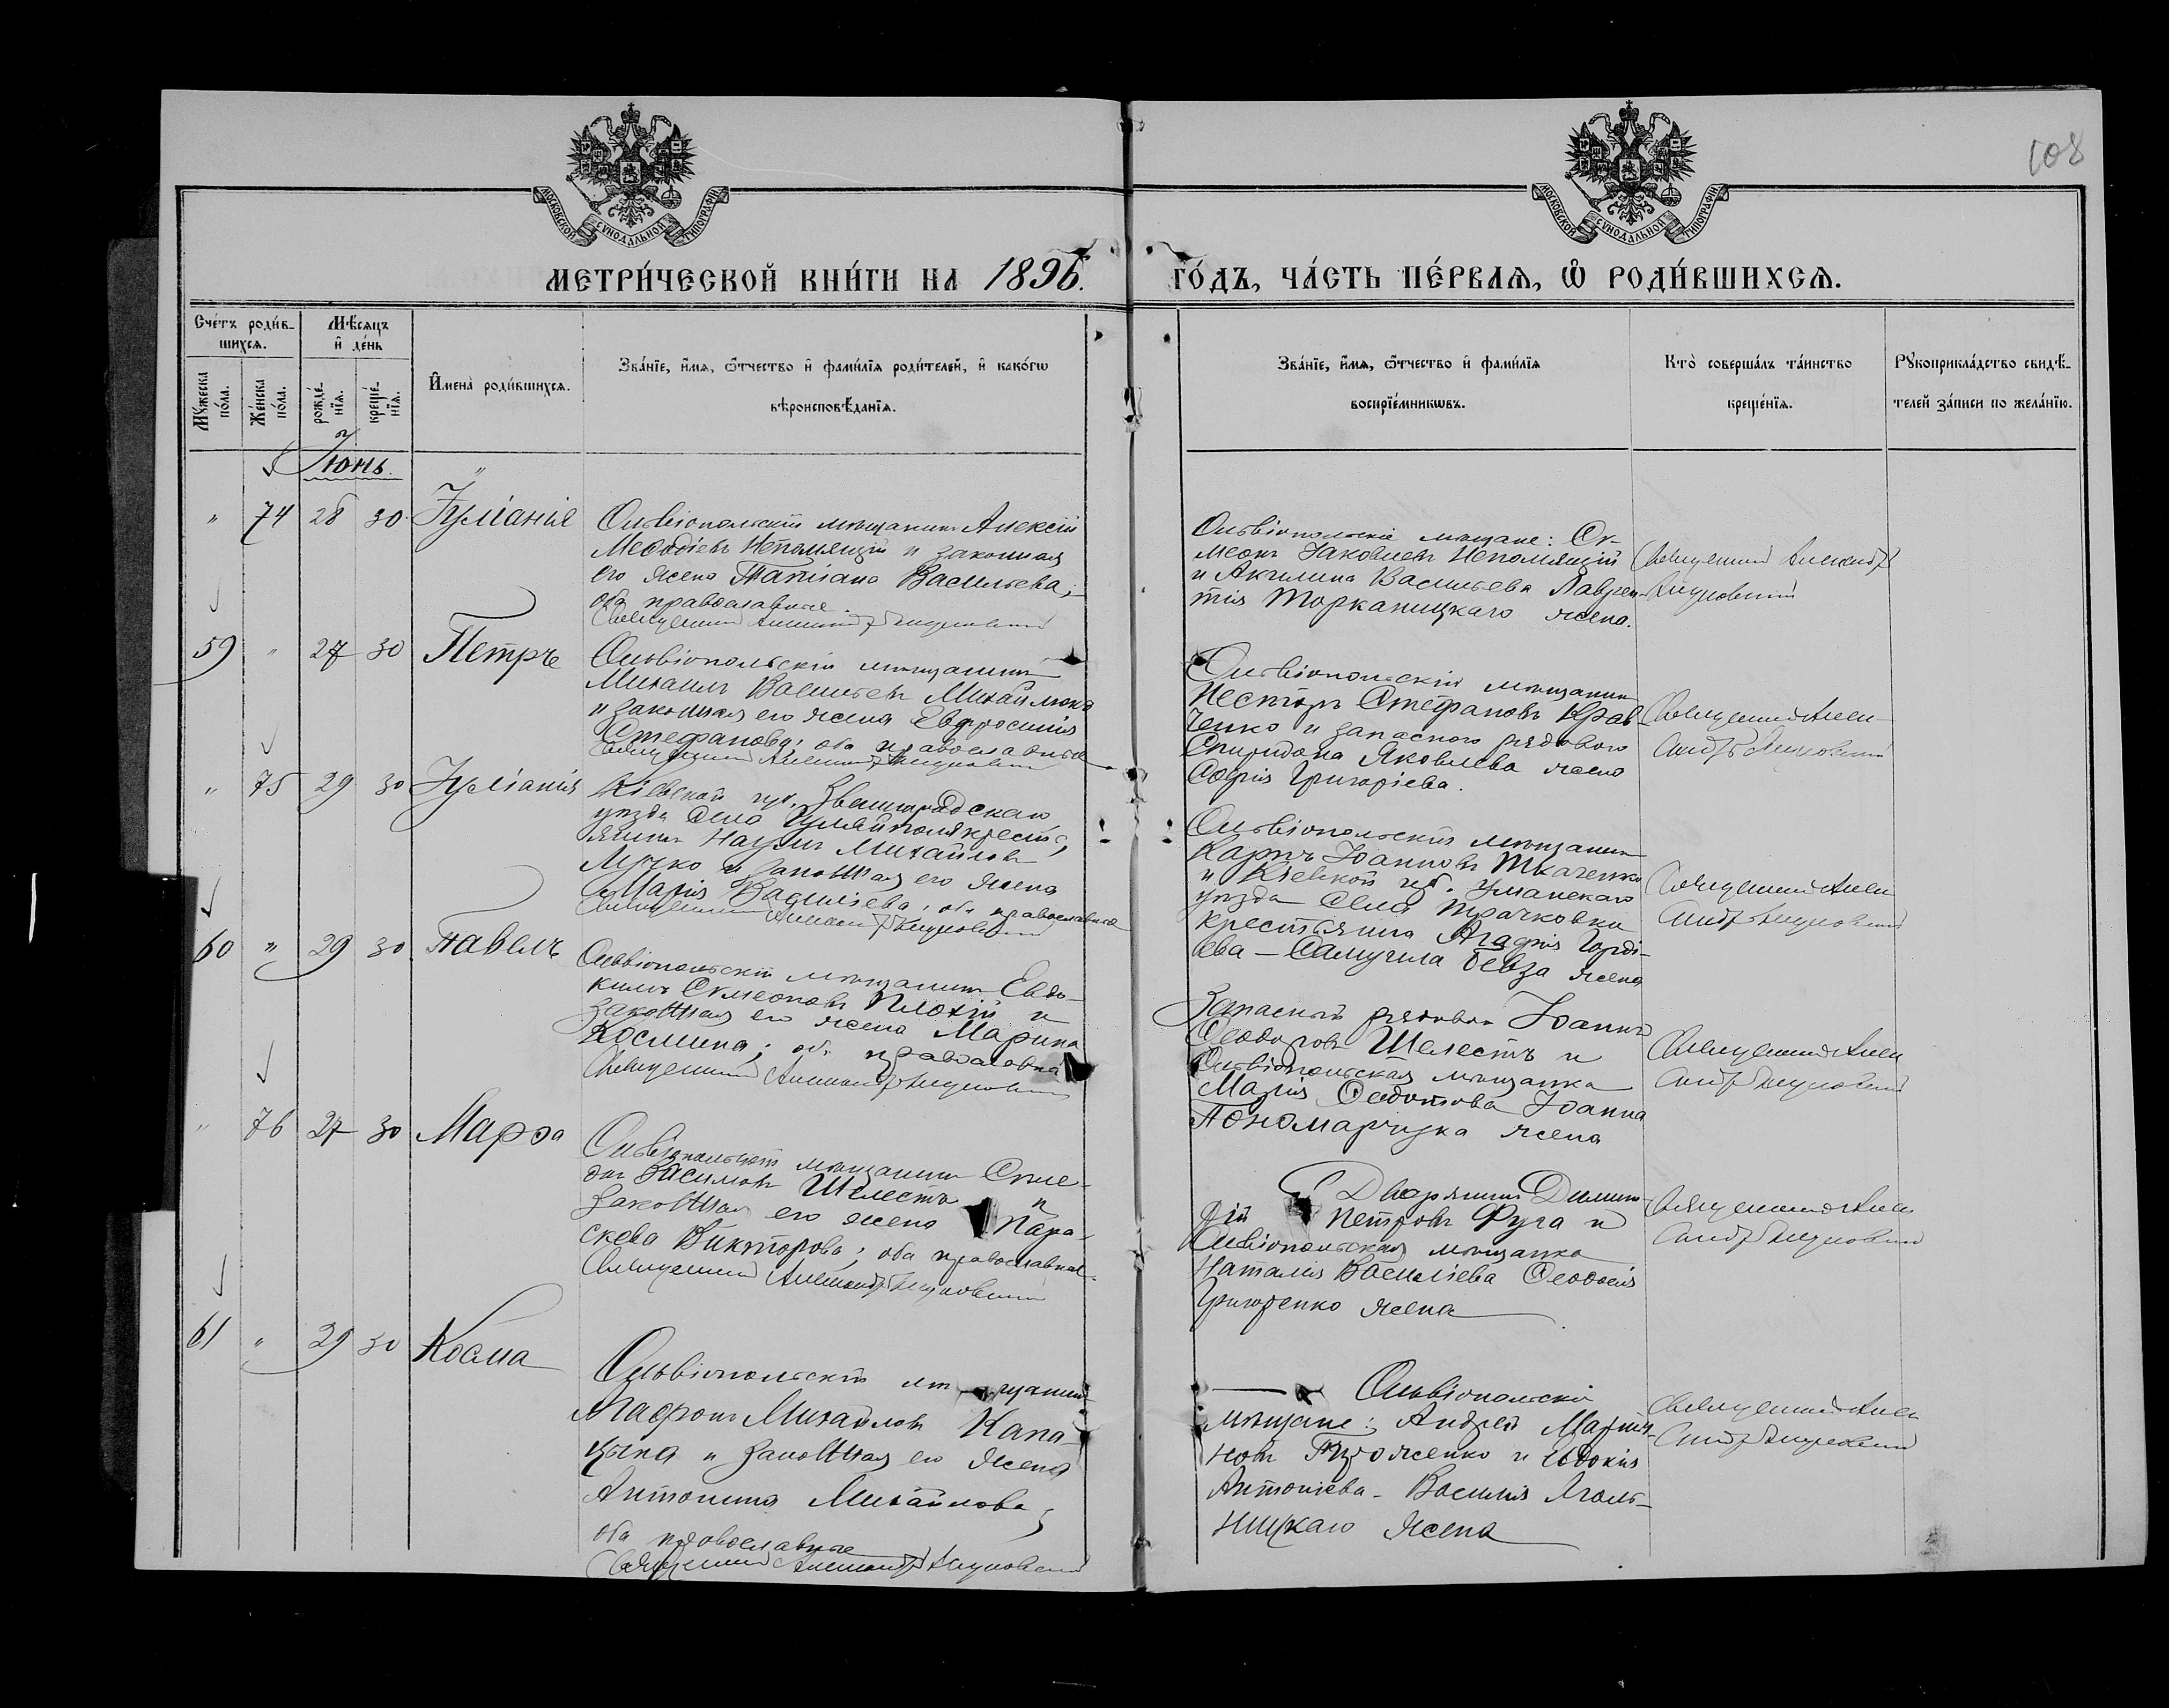 108
МОСКОВСКОЙ СУНОДАЛЬНОЙ ТИПОГРАФІИ
МОСКОВСКОЙ СУНОДАЛЬНОЙ ТИПОГРАФІИ
МЕТРИ́ЧЕСКОЙ КНИ́ГИ НА 1896. ГО́ДЪ, ЧА́СТЬ ПЕ́РВАѦ, Ѡ РОДИ́ВШИХСѦ.
Сче́тъ роди́в-
шихсѧ.
Мꙋ́жеска
по́ла.
Же́нска
по́ла.
Мѣ́сѧцъ
и҆ де́нь
рожде́-
нїѧ.
креще́-
нїѧ.
И҆мена̀ роди́вшихсѧ.
Зва́нїе, и҆́мѧ, ѻ҆́тчество и҆ фами́лїѧ роди́телей, и҆ како́гѡ
вѣроисповѣ́данїѧ.
Зва́нїе, и҆́мѧ, ѻ҆́тчество и҆ фами́лїѧ
воспрїе́мникѡвъ.
Кто̀ соверша́лъ та́инство
креще́нїѧ.
Рꙋкоприкла́дство свидѣ́-
телей за́писи по жела́нїю.
Іюнь.
" 74 28 30 Іуліанія
Ольвіопольскій мѣщанинъ Алексій
Меѳодіевъ Непомящій и законная
его жена Татіана Васильева;
оба православные.
Священникъ Александръ
Ольвіопольскіе мѣщане: Си-
меонъ Іаковлевъ Непомящій
и Акилина Васильева Лаврен-
тія Торканицкаго жена.
Священникъ Александръ
59 " 27 30 Петръ
Ольвіопольскій мѣщанинъ
Михаилъ Васильевъ Михайлюкъ
и законная его жена Евфросинія
Стефанова; оба православные
Священникъ Александръ
Ольвіопольскій мѣщанинъ
Несторъ Стефановъ Крав-
ченко и запаснаго рядового
Спиридона Яковлева жена
Софія Григоріева.
Священникъ Алек-
сандръ
" 75 29 30 Іуліанія
Кіевской губ. Звенигородскаго
уѣзда села крестъ-
янинъ Наумъ Михайловъ
Лучко и законная его жена
Марія Василіева; оба православные
Священникъ Александръ
Ольвіопольскій мѣщанинъ
Карпъ Іоанновъ Ткаченко
и Кіевской губ. Уманскаго
уѣзда села Трачковки
крестьянина Агафія Горді-
ева – Самуила жена
Священникъ Алек-
сандръ
60 " 29 30 Павелъ
Ольвіопольскій мѣщанинъ Евдо-
кимъ Симеоновъ Плохій и
законная его жена Марина
Косьмина; оба православные
Священникъ Александръ
Запасный рядовой Іоаннъ
Ѳеодоровъ Шелестъ и
Ольвіопольская мѣщанка
Марія Ѳедотова Іоанна
Пономарчука жена
Священникъ Алек-
сандръ
" 76 27 30 Марѳа
Ольвіопольскій мѣщанинъ
Шелестъ и
законная его жена Пара-
скева Викторова; оба православные
Священникъ Александръ
Дворянинъ Димит-
рій Петровъ Фуга и
Ольвіопольская мѣщанка
Наталія Василіева Ѳеодосія
Григоренко жена
Священникъ Алек-
сандръ
61 " 29 30 Косма
Ольвіопольскій мѣщанинъ
Агафонъ Михайловъ Капа-
цына и законная его жена
Антонина Михайлова;
оба православные
Священникъ Александръ
Ольвіопольскіе
мѣщане: Андрей Марти-
новъ и Евдокія
Антоніева – Василія Яголь-
ницкаго жена
Священникъ Алек-
сандръ